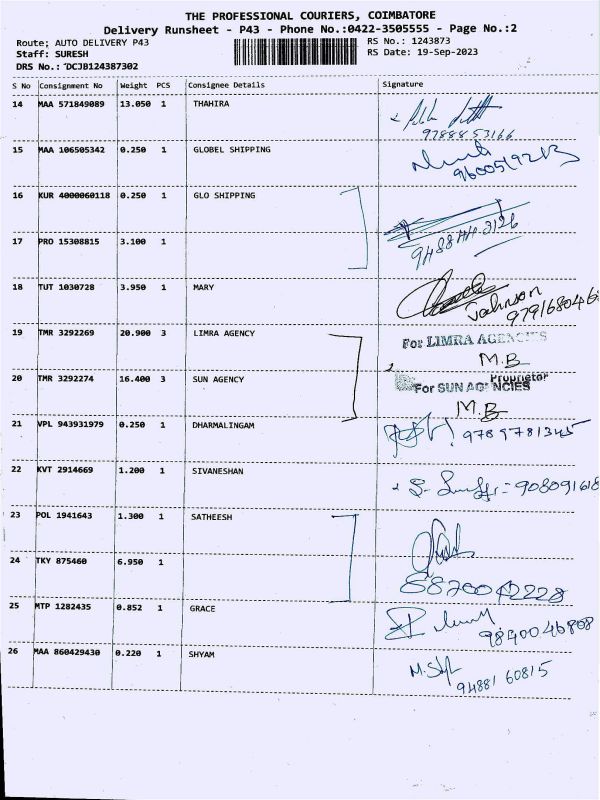 THE PROFESSIONAL COURIERS, COIMBATORE
Delivery Runsheet - P43 - Phone No.:0422-3505555 - Page No.:2
Route; AUTO DELIVERY P43 RS No.: 1243873
Staff: SURESH RS Date: 19-Sep-2023
DRS No.: DCJB124387302
S No Consignment No Weight PCS Consignee Details Signature
14 MAA 571849089 13.050 1 THAHIRA
9788853166
15 MAA 106505342 0.250 1 GLOBEL SHIPPING
16 KUR 4000060118 0.250 1 GLO SHIPPING
17 PRO 15308815 3.100 1
18 TUT 1030728 3.950 1 MARY
Jahnson
979168046
19 TMR 3292269 20.900 3 LIMRA AGENCY For LIMRA AGENCIES
M.B
Proprietor
20 TMR 3292274 16.400 3 SUN AGENCY For SUN AGENCIES
M.B
21 VPL 943931979 0.250 1 DHARMALINGAM 9789781345
22 KVT 2914669 1.200 1 SIVANESHAN
908091618
23 POL 1941643 1.300 1 SATHEESH
24 TKY 875460 6.950 1
25 MTP 1282435 0.852 1 GRACE
9840046808
26 MAA 860429430 0.220 1 SHYAM
94881 60815